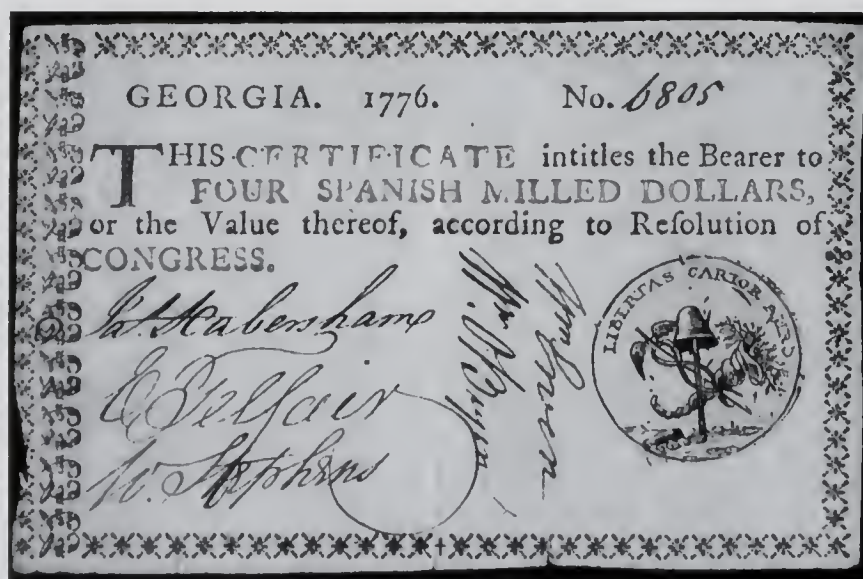 GEORGIA. 1776. No. 6805
THIS CERTIFICATE intitles the Bearer to
FOUR SPANISH MILLED DOLLARS,
or the Value thereof, according to Resolution of
CONGRESS.
Jas. Habersham
E Telfair
W. Stephens
LIBERTAS CARIOR AURO